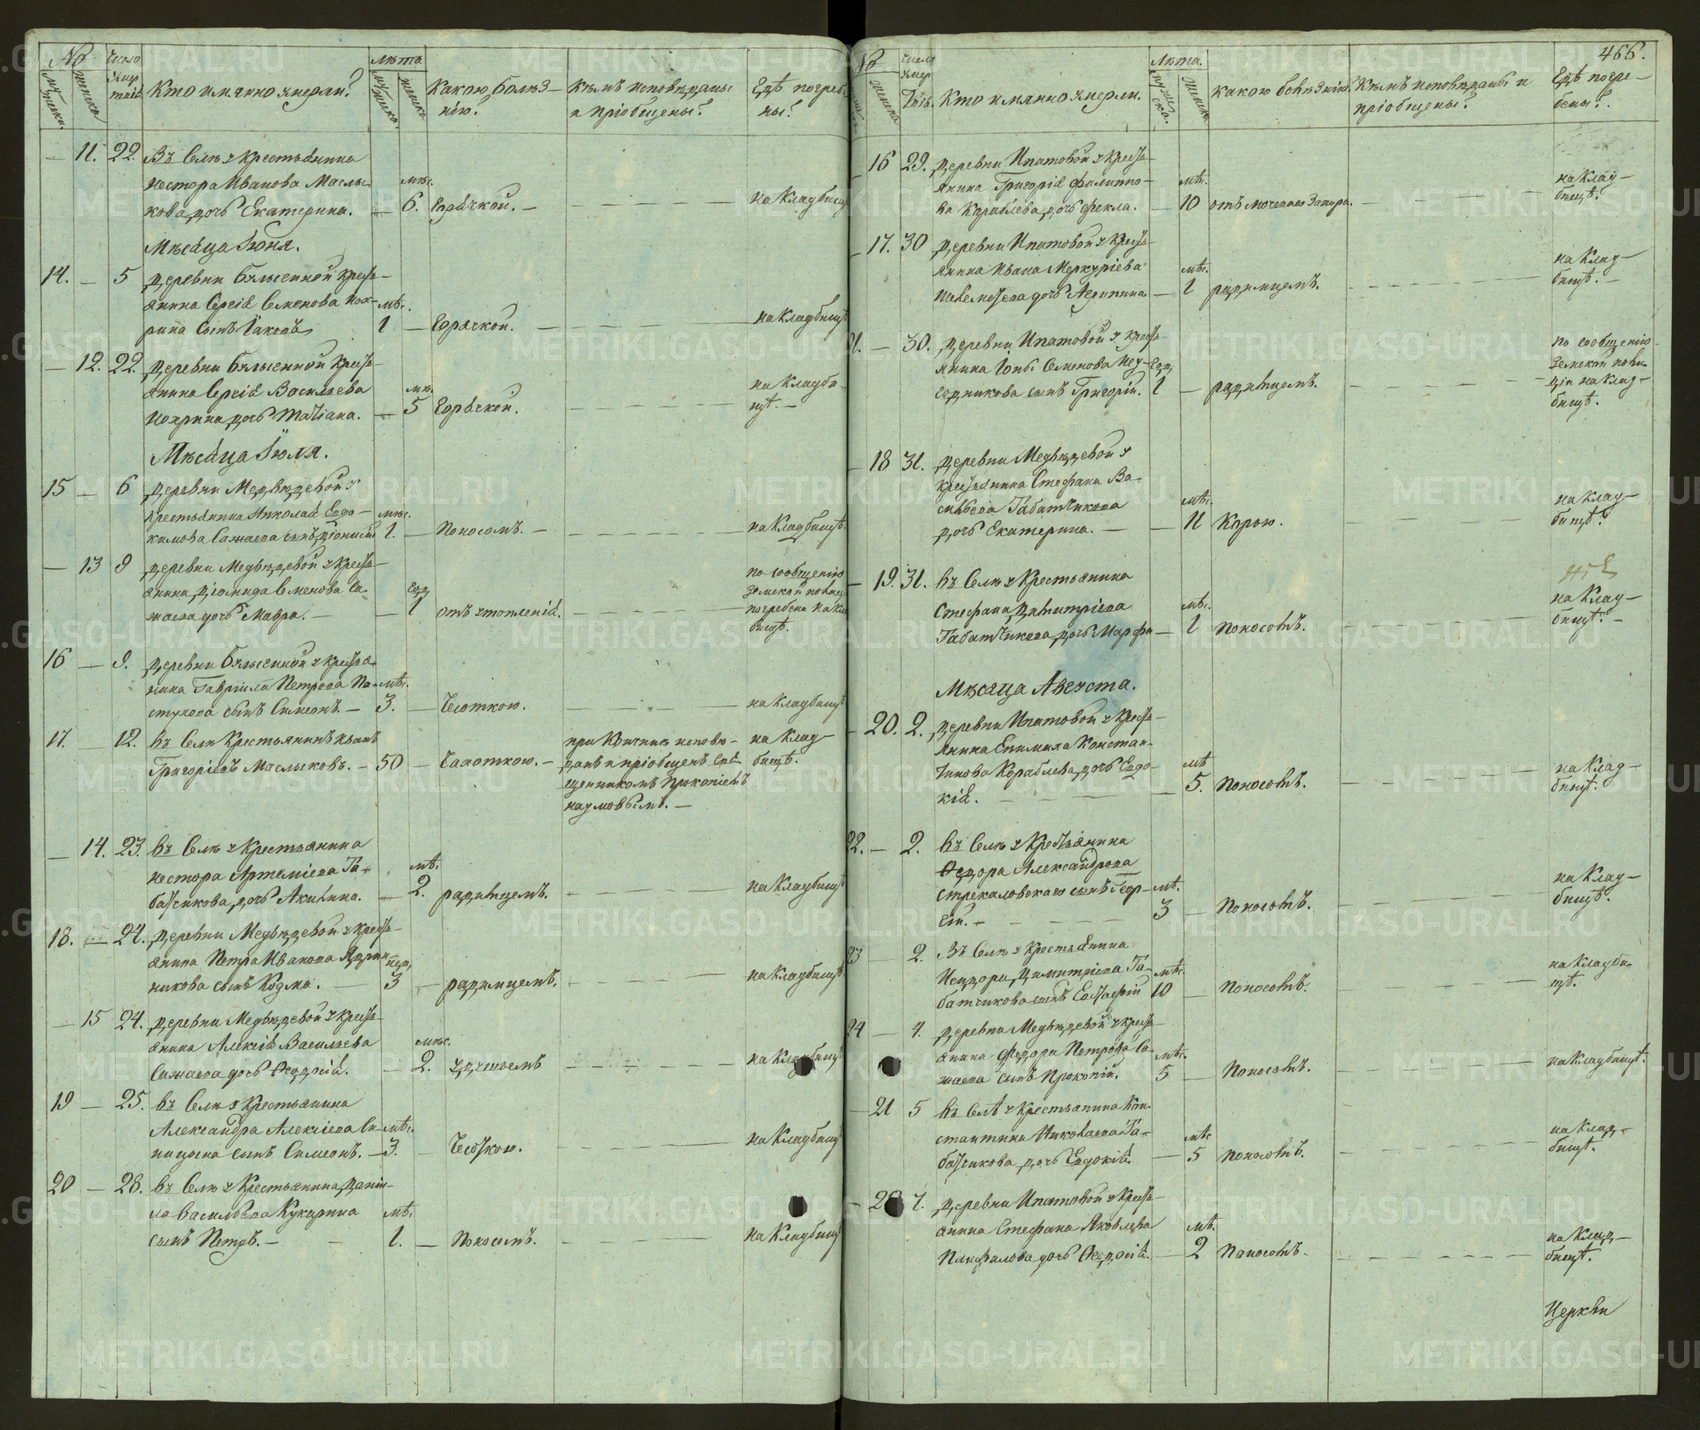 №
Число
умер
шихъ
Кто имянно умерли?
Лѣта
мужеска.
женска.
Какою болѣз-
нію?
Кѣмъ исповѣдованы
и пріобщены?
Гдѣ погреб
ны?
— 11. 22. Въ Селѣ у Крестьянина
Нестора Иванова Маслы-
кова дочь Екатерина. — 6. Горячкой. — на Кладбищѣ
мѣс.
Мѣсяца Іюня.
14. — 5 Деревни Бѣлысенной Кресть-
янина Сергія Семенова Ног-
рина сынъ Іаковъ 1 — Горячкой. — на Кладбищѣ
мѣс.
— 12. 22. Деревни Бѣлысенной Кресть-
янина Сергія Васильева
дочь Татіана. — 5 Горячкой. на Кладби-
щѣ. —
мѣс.
Мѣсяца Іюля.
15 — 6 Деревни Медвѣдевой у
Крестьянина Николая Евдо-
кимова Сажаева сынъ Діонисій 1. — Поносомъ. — на Кладбищѣ
мѣс.
— 13 9 Деревни Медвѣдевой у Кресть-
янина Діомида Семенова Са-
жаева дочь Мавра. — 1 отъ утопленія.
год.
по сообщенію
Земской полиц
погребена на Кла
бищѣ.
16 — 9. Деревни Бѣлысенной у Крестья-
нина Гавріила Петрова Па-
стухова сынъ Симеонъ. — 3. — Чесоткою. на Кладбищѣ
мѣс.
17. — 12. въ Селѣ Крестьянинъ
Григорьевъ Маслыковъ. — 50 — Чахоткою. —
при Кончинѣ исповѣ-
данъ и пріобщенъ Свя-
щенникомъ Прокопіемъ
Наумовымъ. —
на Клад-
бищѣ.
— 14. 23. въ Селѣ у Крестьянина
Нестора Артеміева Та-
батчикова дочь Акилина. — 2. родимцемъ. на Кладбищѣ
мѣс.
18. — 24. Деревни Медвѣдевой у Кресть-
янина Петра Иванова
сынъ Козма. — 3 — родимцемъ. на Кладбищѣ
нед.
— 15 24. Деревни Медвѣдевой у Кресть-
янина Алексія Васильева
Сажаева дочь Ѳеодосія. — 2. удушьемъ на Кладбищѣ
мѣс.
19 — 25. въ Селѣ у Крестьянина
Александра Алексіева Си-
ницына сынъ Симеонъ. — 3. — Чесоткою. на Кладбищѣ
мѣс.
20 — 28. въ Селѣ у Крестьянина Дани-
ла Васильева Кукарина
сынъ Петръ. — 1. — Поносомъ. на Кладбищѣ
мѣс.
466.
№
Число
умер
шихъ.
Кто имянно умерли.
Лѣта.
мужеска.
женска.
какою болѣзнію.
Кѣмъ исповѣданы и
пріобщены?
Гдѣ погре-
бены?
16 29. Деревни Ипатовой у Кресть-
янина Григорія Филиппо-
ва Кораблева дочь Ѳекла. — 10 отъ мочеваго Запора. на Клад-
бищѣ.
мѣс.
17. 30 Деревни Ипатовой у Кресть-
янина Ивана Меркуріева
дочь Агрипина — 1 родимцемъ. на Клад-
бищѣ. —
мѣс.
21. — 30. Деревни Ипатовой у Кресть-
янина Іоны Семенова
сынъ Григорій. 1 — родимцемъ.
год.
по сообщенію
Земской поли-
ціи на Клад-
бищѣ.
— 18 31. Деревни Медвѣдевой у
крестьянина Стефана Ва-
сильева Табатчикова
дочь Екатерина. — 11 Корью. на Клад-
бищѣ.
мѣс.
— 19. 31. въ Селѣ у Крестьянина
Стефана Димитріева
Табатчикова дочь Марфа — 1 Поносомъ. на Клад-
бищѣ. —
мѣс.
Мѣсяца Августа.
— 20. 2. Деревни Ипатовой у Кресть-
янина Епимаха Констан-
тинова Кораблева дочь Евдо-
кія. — 5. Поносомъ. на Клад-
бищѣ.
мѣс.
22. — 2. въ Селѣ у Крестьянина
Ѳедора Александрова
Стрекаловскаго сынъ Геор-
гій. — 3 — Поносомъ. на Клад-
бищѣ.
мѣс.
23 — 2. Въ Селѣ у Крестьянина
Исидора Димитріева Та-
батчикова сынъ Евстафій 10 — Поносомъ. на Кладби-
щѣ.
мѣс.
24 — 4. Деревни Медвѣдевой у Кресть-
янина Федора Петрова Са-
жаева сынъ Прокопій. 5 — Поносомъ. на Кладбищѣ.
мѣс.
— 21 5 въ Селѣ у Крестьянина Кон-
стантина Николаева Та-
батчикова дочь Евдокія. — 5 Поносомъ. на Клад-
бищѣ.
мѣс.
— 22 7. Деревни Ипатовой у Кресть-
янина Стефана Яковлева
Панфилова дочь Ѳеодосія. — 2 Поносомъ. на Клад-
бищѣ.
мѣс.
Церкви
METRIKI.GASO-URAL.RU